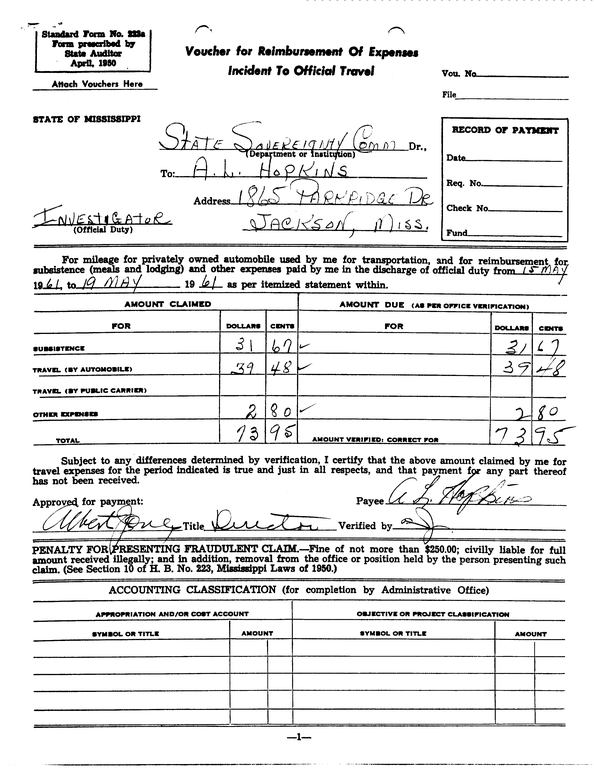 Standard Form No. 223a
Form prescribed by
State Auditor
April, 1950
Attach Vouchers Here
Voucher for Reimbursement Of Expenses
Incident To Official Travel
Vou. No.
File
STATE OF MISSISSIPPI
STATE SOVEREIGNTY COMM Dr.,
(Department or Institution)
To: A. L. HOPKINS
Address 1865 PARKRIDGE DR
JACKSON, MISS.
INVESTIGATOR
(Official Duty)
RECORD OF PAYMENT
Date
Req. No.
Check No.
Fund
For mileage for privately owned automobile used by me for transportation, and for reimbursement for
subsistence (meals and lodging) and other expenses paid by me in the discharge of official duty from 15 MAY
1961, to 19 MAY 1961 as per itemized statement within.
AMOUNT CLAIMED AMOUNT DUE (AS PER OFFICE VERIFICATION)
FOR DOLLARS CENTS FOR DOLLARS CENTS
SUBSISTENCE 31 67 31 67
TRAVEL (BY AUTOMOBILE) 39 48 39 48
TRAVEL (BY PUBLIC CARRIER)
OTHER EXPENSES 2 80 2 80
TOTAL 73 95 AMOUNT VERIFIED: CORRECT FOR 73 95
Subject to any differences determined by verification, I certify that the above amount claimed by me for
travel expenses for the period indicated is true and just in all respects, and that payment for any part thereof
has not been received.
Approved for payment: Payee A L Hopkins
Albert Jones Title Director Verified by
PENALTY FOR PRESENTING FRAUDULENT CLAIM.—Fine of not more than $250.00; civilly liable for full
amount received illegally; and in addition, removal from the office or position held by the person presenting such
claim. (See Section 10 of H. B. No. 223, Mississippi Laws of 1950.)
ACCOUNTING CLASSIFICATION (for completion by Administrative Office)
APPROPRIATION AND/OR COST ACCOUNT OBJECTIVE OR PROJECT CLASSIFICATION
SYMBOL OR TITLE AMOUNT SYMBOL OR TITLE AMOUNT
—1—